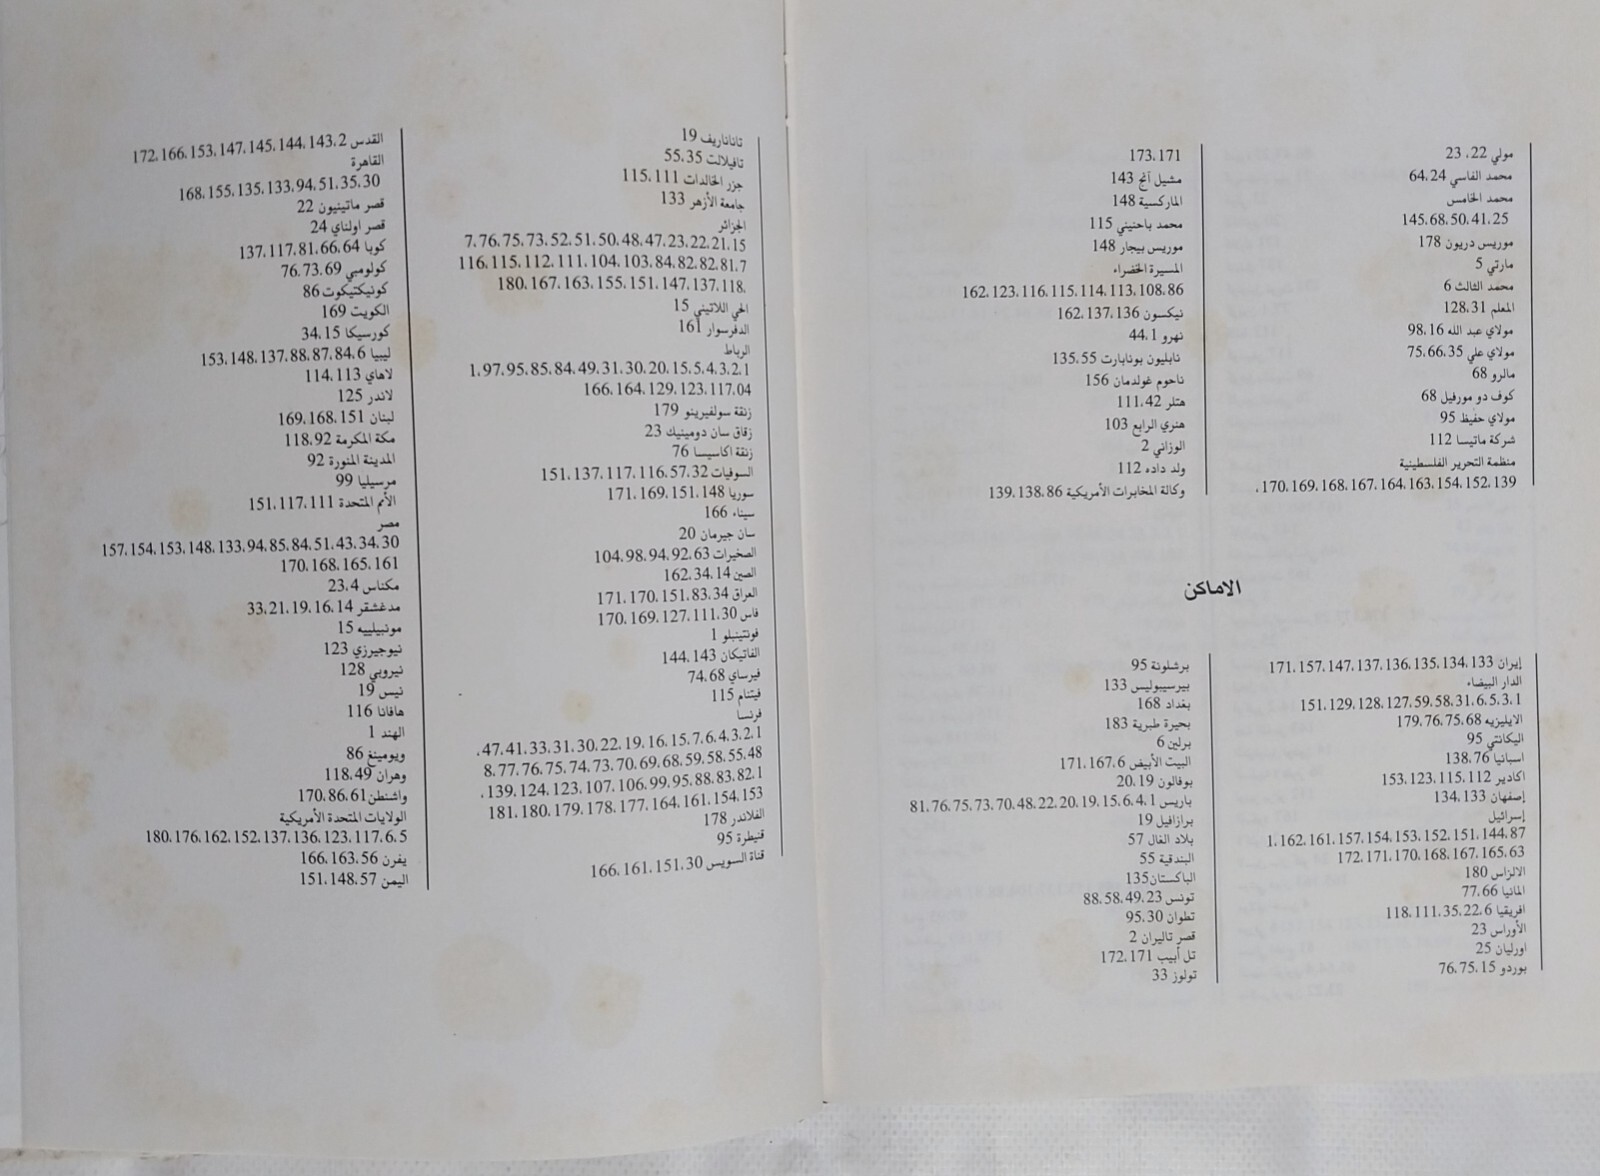 مولي 22، 23
محمد الفاسي 64.24
محمد الخامس
145.68.50.41.25
موريس دريون 178
مارتي 5
محمد الثالث 6
المعلم 128.31
مولاي عبد الله 98.16
مولاي علي 75.66.35
مالرو 68
كوف دو مورفيل 68
مولاي حفيظ 95
شركة ماتيسا 112
منظمة التحرير الفلسطينية
170.169.168.167.164.163.154.152.139.
173.171
مشيل آنج 143
الماركسية 148
محمد باحنيني 115
موريس بيجار 148
المسيرة الخضراء
162.123.116.115.114.113.108.86
نيكسون 162.137.136
نهرو 44.1
نابليون بونابارت 135.55
ناحوم غولدمان 156
هتلر 111.42
هنري الرابع 103
الوزاني 2
ولد داده 112
وكالة المخابرات الأمريكية 139.138.86
الاماكن
إيران 171.157.147.137.136.135.134.133
الدار البيضاء
151.129.128.127.59.58.31.6.5.3.1
الايليزيه 179.76.75.68
اليكانتي 95
اسبانيا 138.76
اكادير 153.123.115.112
إصفهان 134.133
إسرائيل
1.162.161.157.154.153.152.151.144.87
172.171.170.168.167.165.63
الالزاس 180
المانيا 77.66
افريقيا 118.111.35.22.6
الأوراس 23
اورليان 25
بوردو 76.75.15
برشلونة 95
بيرسيبوليس 133
بغداد 168
بحيرة طبرية 183
برلين 6
البيت الأبيض 171.167.6
بوفالون 20.19
باريس 81.76.75.73.70.48.22.20.19.15.6.4.1
برازافيل 19
بلاد الغال 57
البندقية 55
الباكستان 135
تونس 88.58.49.23
تطوان 95.30
قصر تاليران 2
تل أبيب 172.171
تولوز 33
تاناناريف 19
تافيلالت 55.35
جزر الخالدات 115.111
جامعة الأزهر 133
الجزائر
7.76.75.73.52.51.50.48.47.23.22.21.15
116.115.112.111.104.103.84.82.82.81.7
180.167.163.155.151.147.137.118.
الحي اللاتيني 15
الدفرسوار 161
الرباط
1.97.95.85.84.49.31.30.20.15.5.4.3.2.1
166.164.129.123.117.04
زنقة سولفيرينو 179
زقاق سان دومينيك 23
زنقة اكاسيسا 76
السوفيات 151.137.117.116.57.32
سوريا 171.169.151.148
سيناء 166
سان جيرمان 20
الصخيرات 104.98.94.92.63
الصين 162.34.14
العراق 171.170.151.83.34
فاس 170.169.127.111.30
فونتينبلو 1
الفاتيكان 144.143
فيرساي 74.68
فيتنام 115
فرنسا
47.41.33.31.30.22.19.16.15.7.6.4.3.2.1.
8.77.76.75.74.73.70.69.68.59.58.55.48
139.124.123.107.106.99.95.88.83.82.1.
181.180.179.178.177.164.161.154.153
الفلاندر 178
قنيطرة 95
قناة السويس 166.161.151.30
القدس 172.166.153.147.145.144.143.2
القاهرة
168.155.135.133.94.51.35.30
قصر ماتينيون 22
قصر اولناي 24
كوبا 137.117.81.66.64
كولومبي 76.73.69
كونيكتيكوت 86
الكويت 169
كورسيكا 34.15
ليبيا 153.148.137.88.87.84.6
لاهاي 114.113
لاندر 125
لبنان 169.168.151
مكة المكرمة 118.92
المدينة المنورة 92
مرسيليا 99
الأمم المتحدة 151.117.111
مصر
157.154.153.148.133.94.85.84.51.43.34.30
170.168.165.161
مكناس 23.4
مدغشقر 33.21.19.16.14
مونبيلييه 15
نيوجيرزي 123
نيروبي 128
نيس 19
هافانا 116
الهند 1
ويومينغ 86
وهران 118.49
واشنطن 170.86.61
الولايات المتحدة الأمريكية
180.176.162.152.137.136.123.117.6.5
يفرن 166.163.56
اليمن 151.148.57